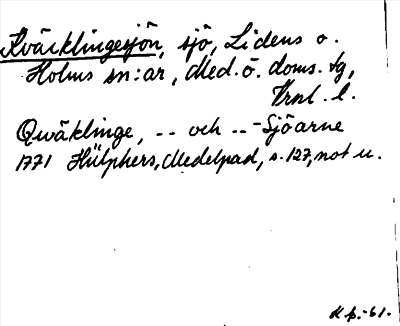 Kväcklingesjön, sjö, Lidens o.
Holms sn:ar, Med. ö. doms. tg,
Vrnl. l.
Qwäklinge, -- och -- -Sjöarne
1771 Hülphers, Medelpad, s. 127, not u.
K p. -61-